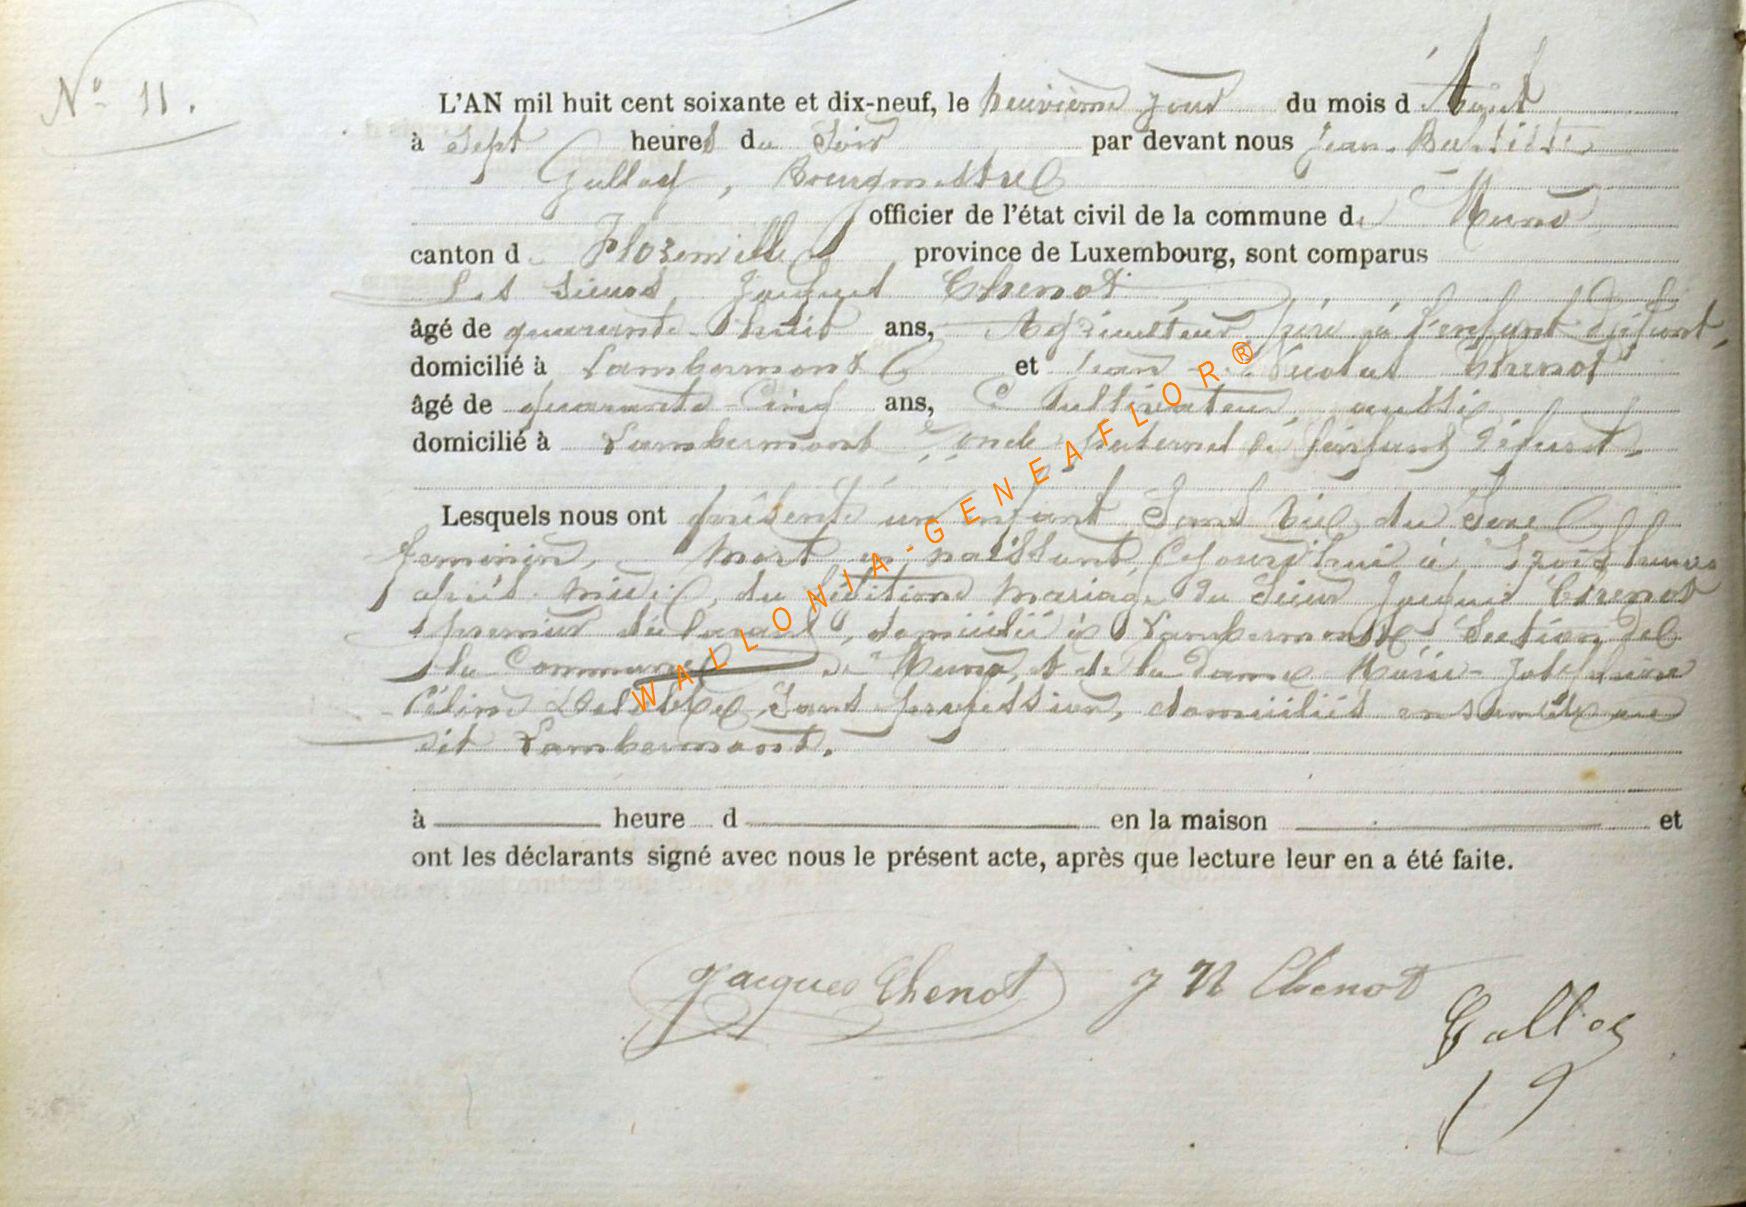 N° 11.
L'AN mil huit cent soixante et dix-neuf, le neuvième jour du mois d'Août
à Sept heures du Soir par devant nous Jean-Baptiste
Bourgmestre
officier de l'état civil de la commune de Muno
canton de Florenville province de Luxembourg, sont comparus
Les Sieurs Jacques Thenot
âgé de quarante huit ans, Agriculteur, père à l'enfant défunt,
domicilié à Lambermont et Jean-Nicolas Thenot
âgé de quarante-cinq ans, Cultivateur, aussi
domicilié à Lambermont, oncle paternel à l'enfant défunt.
Lesquels nous ont présenté un enfant Sans vie, du Sexe
féminin, mort en naissant, cejourd'hui à trois heures
après midi, du légitime mariage du Sieur Jacques Thenot
premier déclarant, domicilié à Lambermont Section de
la Commune de Muno, et de la dame Marie-Joséphine
Céline Sans profession, domiciliés ensemble au
dit Lambermont.
à heure d en la maison et
ont les déclarants signé avec nous le présent acte, après que lecture leur en a été faite.
Jacques Thenot J N Thenot
WALLONIA-GENEAFLOR®